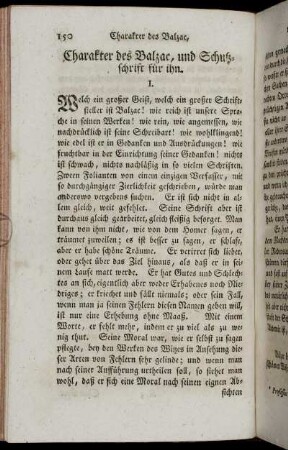 150 Charakter des Balzac,
Charakter des Balzac, und Schutz-
schrift für ihn.
I.
Welch ein großer Geist, welch ein großer Schrift-
steller ist Balzac! wie reich ist unsere Spra-
che in seinen Werken! wie rein, wie angemessen, wie
nachdrücklich ist seine Schreibart! wie wohlklingend!
wie edel ist er in Gedanken und Ausdrückungen! wie
fruchtbar in der Einrichtung seiner Gedanken! nichts
ist schwach, nichts nachläßig in so vielen Schriften.
Zween Folianten von einem einzigen Verfasser, mit
so durchgängiger Zierlichkeit geschrieben, würde man
anderswo vergebens suchen. Er ist sich nicht in al-
lem gleich, weit gefehlt. Seine Schrift aber ist
durchaus gleich gearbeitet, gleich fleißig besorget. Man
kann von ihm nicht, wie von dem Homer sagen, er
träumet zuweilen; es ist besser zu sagen, er schlafe,
aber er habe schöne Träume. Er verirret sich lieber,
oder gehet über das Ziel hinaus, als daß er in sei-
nem Laufe matt werde. Er hat Gutes und Schlech-
tes an sich, eigentlich aber weder Erhabenes noch Nie-
driges; er kriechet und fällt niemals; oder sein Fall,
wenn man ja seinen Fehlern diesen Namen geben will,
ist nur eine Erhebung ohne Maaß. Mit einem
Worte, er fehlt mehr, indem er zu viel als zu we-
nig thut. Seine Moral war, wie er selbst zu sagen
pflegte, bey den Werken des Witzes in Ansehung die-
ser Arten von Fehlern sehr gelinde; und wenn man
nach seiner Aufführung urtheilen soll, so siehet man
wohl, daß er sich eine Moral nach seinen eignen Ab-
sichten